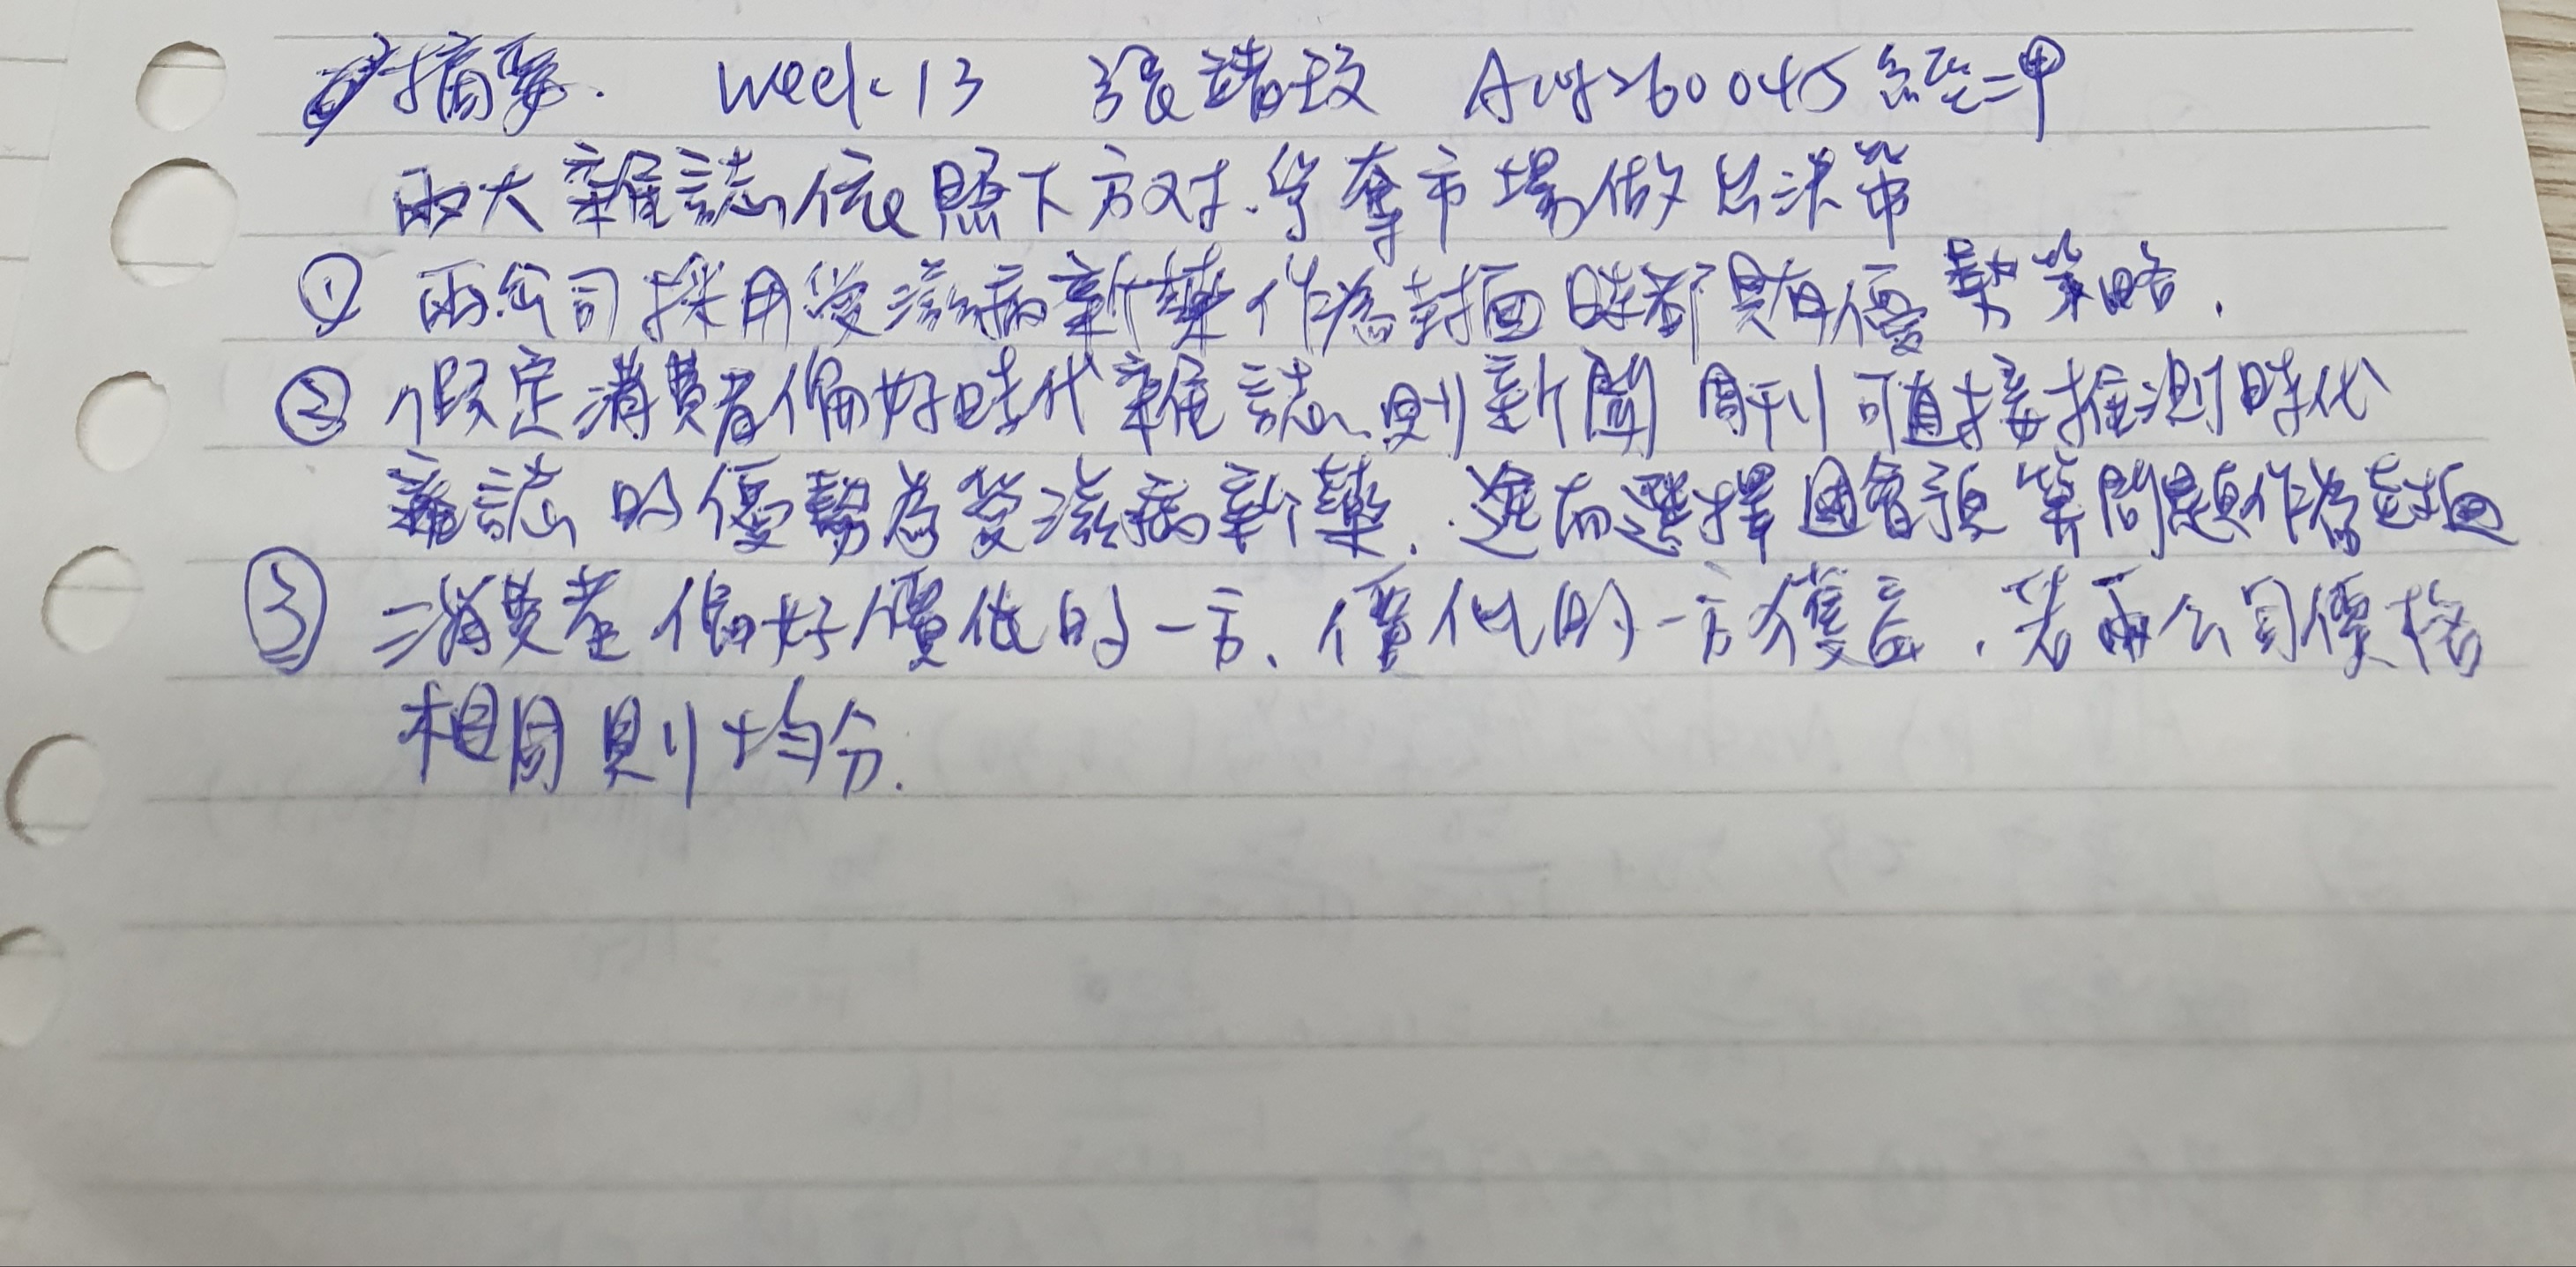 摘要. Week 13 張 玟 260045 經二甲
兩大雜誌依照下方对.爭奪市場做出決策
① 兩公司採用愛滋病新藥作為封面時都具有優勢策略.
② 假定消費者偏好時代雜誌、則新聞周刊可直接推測時代
雜誌的優勢為愛滋病新藥.進而選擇國會預算問題作為封面
③ 消費者偏好價低的一方、價低的一方獲益.若兩公司價格
相同則均分.